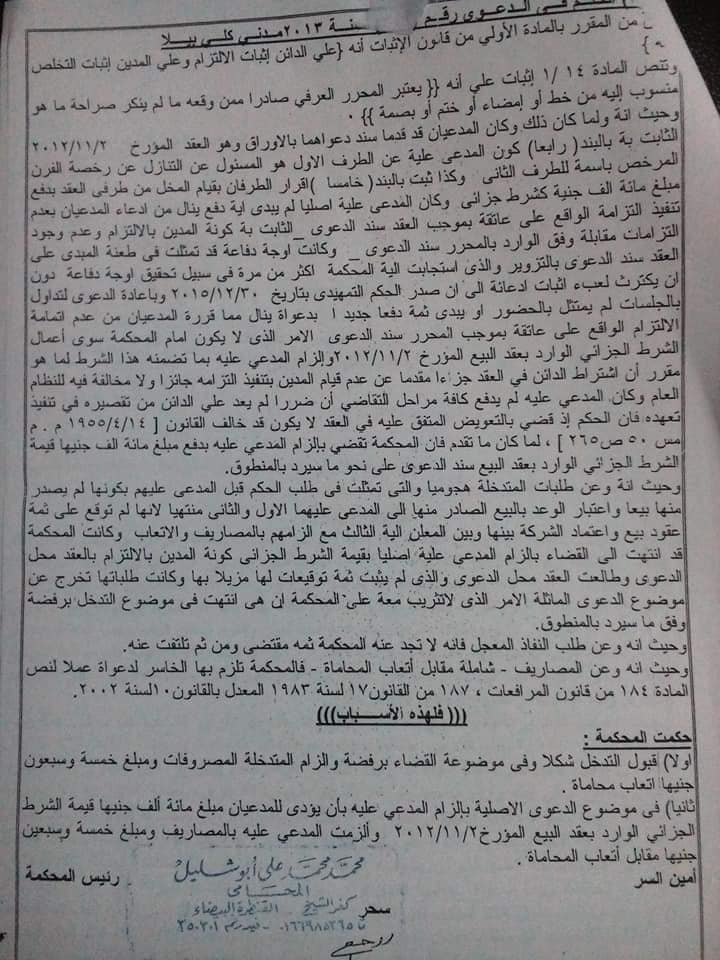 الحكم فى الدعوى رقم سنة ٢٠١٣ مدني كلي بيلا
من المقرر بالمادة الأولي من قانون الإثبات أنه {علي الدائن إثبات الالتزام وعلي المدين إثبات التخلص
}
وتنص المادة ١/١٤ إثبات علي أنه {{ يعتبر المحرر العرفي صادرا ممن وقعه ما لم ينكر صراحة ما هو
منسوب إليه من خط أو إمضاء أو ختم أو بصمة }} .
وحيث انة ولما كان ذلك وكان المدعيان قد قدما سند دعواهما بالاوراق وهو العقد المؤرخ ٢٠١٢/١١/٢
الثابت بة بالبند( رابعا) كون المدعى علية عن الطرف الاول هو المسئول عن التنازل عن رخصة الفرن
المرخص باسمة للطرف الثانى وكذا ثبت بالبند( خامسا )اقرار الطرفان بقيام المخل من طرفى العقد بدفع
مبلغ مائة الف جنية كشرط جزائى وكان المدعى علية اصليا لم يبدى اية دفع ينال من ادعاء المدعيان بعدم
تنفيذ التزامة الواقع على عاتقة بموجب العقد سند الدعوى _ الثابت بة كونة المدين بالالتزام وعدم وجود
التزامات مقابلة وفق الوارد بالمحرر سند الدعوى _ وكانت اوجة دفاعة قد تمثلت فى طعنة المبدى على
العقد سند الدعوى بالتزوير والذى استجابت الية المحكمة اكثر من مرة فى سبيل تحقيق اوجة دفاعة دون
ان يكترث لعبء اثبات ادعائة الى ان صدر الحكم التمهيدى بتاريخ ٢٠١٥/١٢/٣٠ وباعادة الدعوى لتداول
بالجلسات لم يمتثل بالحضور او يبدى ثمة دفعا جديد ا بدعواة ينال مما قررة المدعيان من عدم اتمامة
الالتزام الواقع على عاتقة بموجب المحرر سند الدعوى الامر الذى لا يكون امام المحكمة سوى أعمال
الشرط الجزائي الوارد بعقد البيع المؤرخ ٢٠١٢/١١/٢وإلزام المدعي عليه بما تضمنه هذا الشرط لما هو
مقرر أن اشتراط الدائن في العقد جزءا مقدما عن عدم قيام المدين بتنفيذ التزامه جائزا ولا مخالفة فيه للنظام
العام وكان المدعي عليه لم يدفع كافة مراحل التقاضي أن ضررا لم يعد علي الدائن من تقصيره في تنفيذ
تعهده فان الحكم إذ قضي بالتعويض المتفق عليه في العقد لا يكون قد خالف القانون [ ١٩٥٥/٤/١٤ م . م
مس ٥٠ ص٢٦٥ ] ، لما كان ما تقدم فان المحكمة تقضي بإلزام المدعي عليه بدفع مبلغ مائة الف جنيها قيمة
الشرط الجزائي الوارد بعقد البيع سند الدعوى علي نحو ما سيرد بالمنطوق.
وحيث انة وعن طلبات المتدخلة هجوميا والتى تمثلت فى طلب الحكم قبل المدعى عليهم بكونها لم يصدر
منها بيعا واعتبار الوعد بالبيع الصادر منها الى المدعى عليهما الاول والثانى منتهيا لانها لم توقع على ثمة
عقود بيع واعتماد الشركة بينها وبين المعلن الية الثالث مع الزامهم بالمصاريف والاتعاب وكانت المحكمة
قد انتهت الى القضاء بالزام المدعى علية اصليا بقيمة الشرط الجزائى كونة المدين بالالتزام بالعقد محل
الدعوى وطالعت العقد محل الدعوى والذى لم يثبت ثمة توقيعات لها مزيلا بها وكانت طلباتها تخرج عن
موضوع الدعوى الماثلة الامر الذى لاتثريب معة على المحكمة ان هى انتهت فى موضوع التدخل برفضة
وفق ما سيرد بالمنطوق.
وحيث انه وعن طلب النفاذ المعجل فانه لا تجد عنه المحكمة ثمه مقتضى ومن ثم تلتفت عنه.
وحيث انه وعن المصاريف - شاملة مقابل أتعاب المحاماة - فالمحكمة تلزم بها الخاسر لدعواة عملا لنص
المادة ١٨٤ من قانون المرافعات ، ١٨٧ من القانون١٧ لسنة ١٩٨٣ المعدل بالقانون١٠لسنة ٢٠٠٢.
((( فلهذه الأسباب)))
حكمت المحكمة :
اولا) قبول التدخل شكلا وفى موضوعة القضاء برفضة والزام المتدخلة المصروفات ومبلغ خمسة وسبعون
جنيها اتعاب محاماة .
ثانيا) فى موضوع الدعوى الاصلية بإلزام المدعي عليه بأن يؤدى للمدعيان مبلغ مائة ألف جنيها قيمة الشرط
الجزائي الوارد بعقد البيع المؤرخ٢٠١٢/١١/٢ وألزمت المدعي عليه بالمصاريف ومبلغ خمسة وسبعين
جنيها مقابل أتعاب المحاماة .
أمين السر رئيس المحكمة
محمد محمد على أبو شليل
المحامى
كفر الشيخ القنطرة البيضاء
سحر